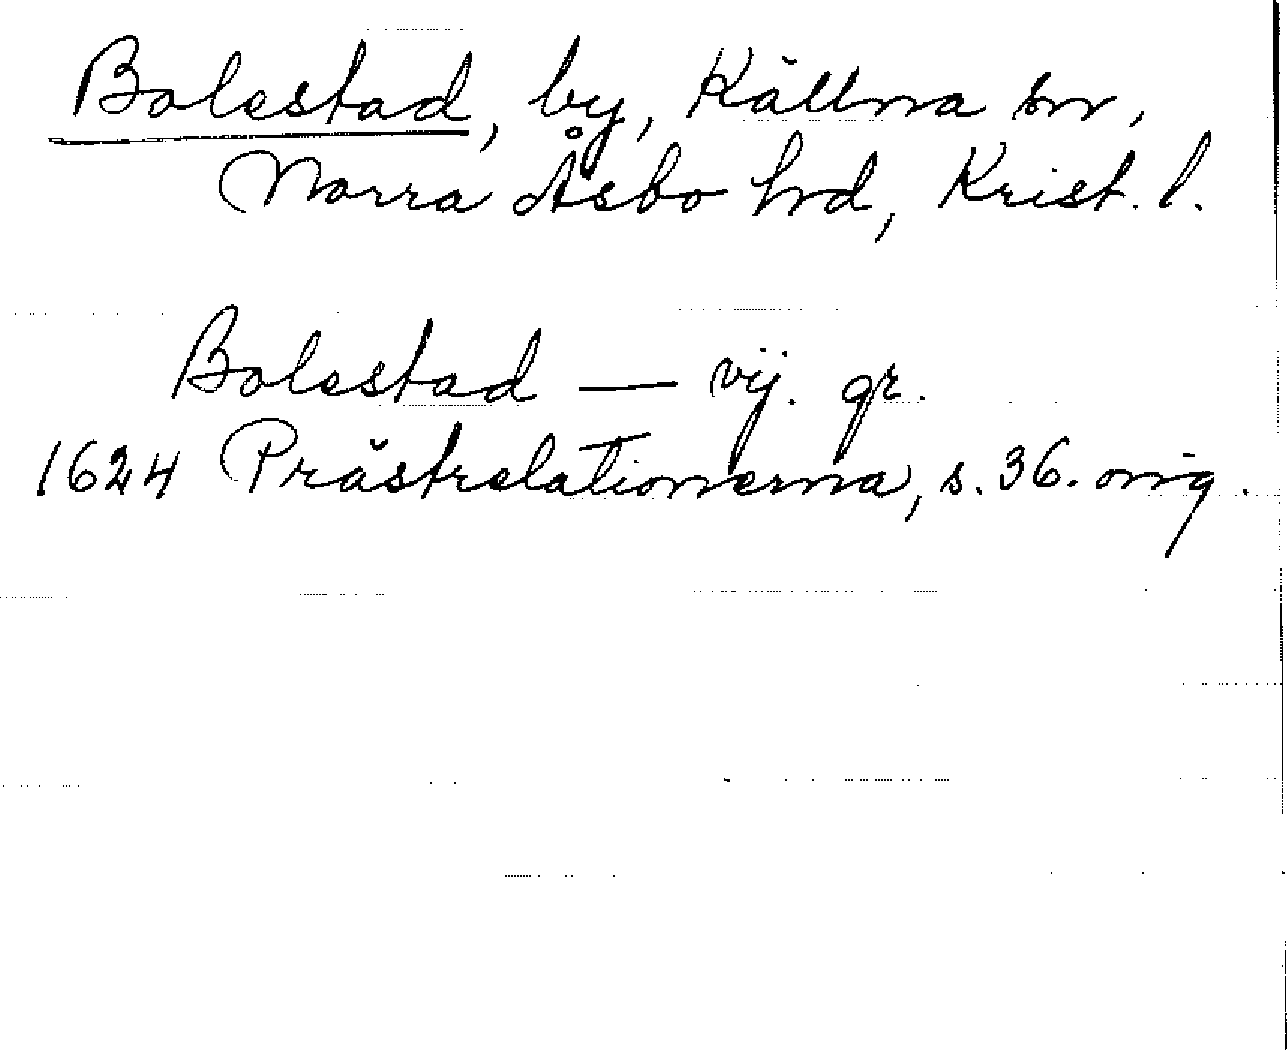 Bolestad, by, Källna sn,
Norra Åsbo hrd, Krist. l.
Bolestad — vij. gr.
1624 Prästrelationerna, s. 36. orig.